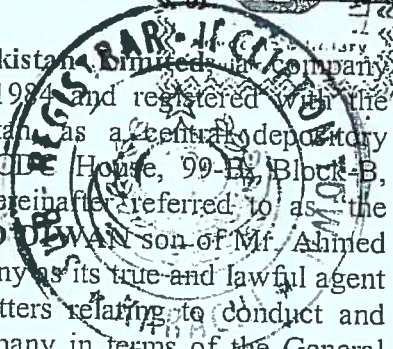 kistan Limited, a company
1984 and registered with the
tan as a central depository
CDC House, 99-B, Block-B,
ereinafter referred to as "the
DIWAN son of Mr. Ahmed
ny as its true and lawful agent
tters relating to conduct and
pany in terms of the General
SUB REGISTRAR-II CLIFTON